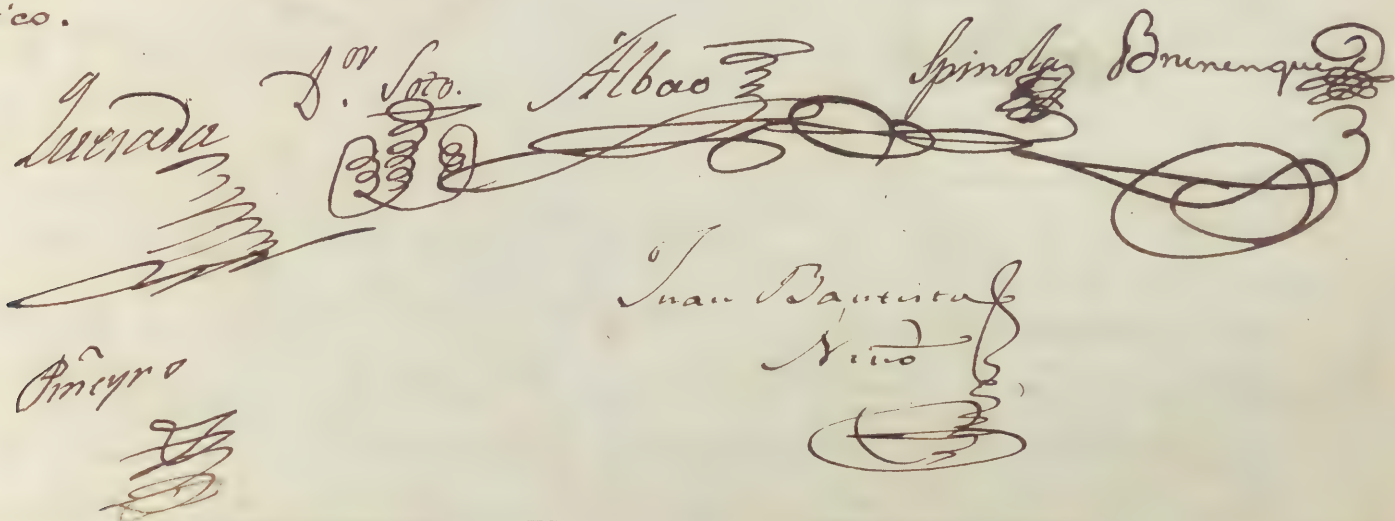 ico.
Quesada D.ᵒʳ Soto. Albao Spinola
Juan Bautista
Niño
Piñeyro